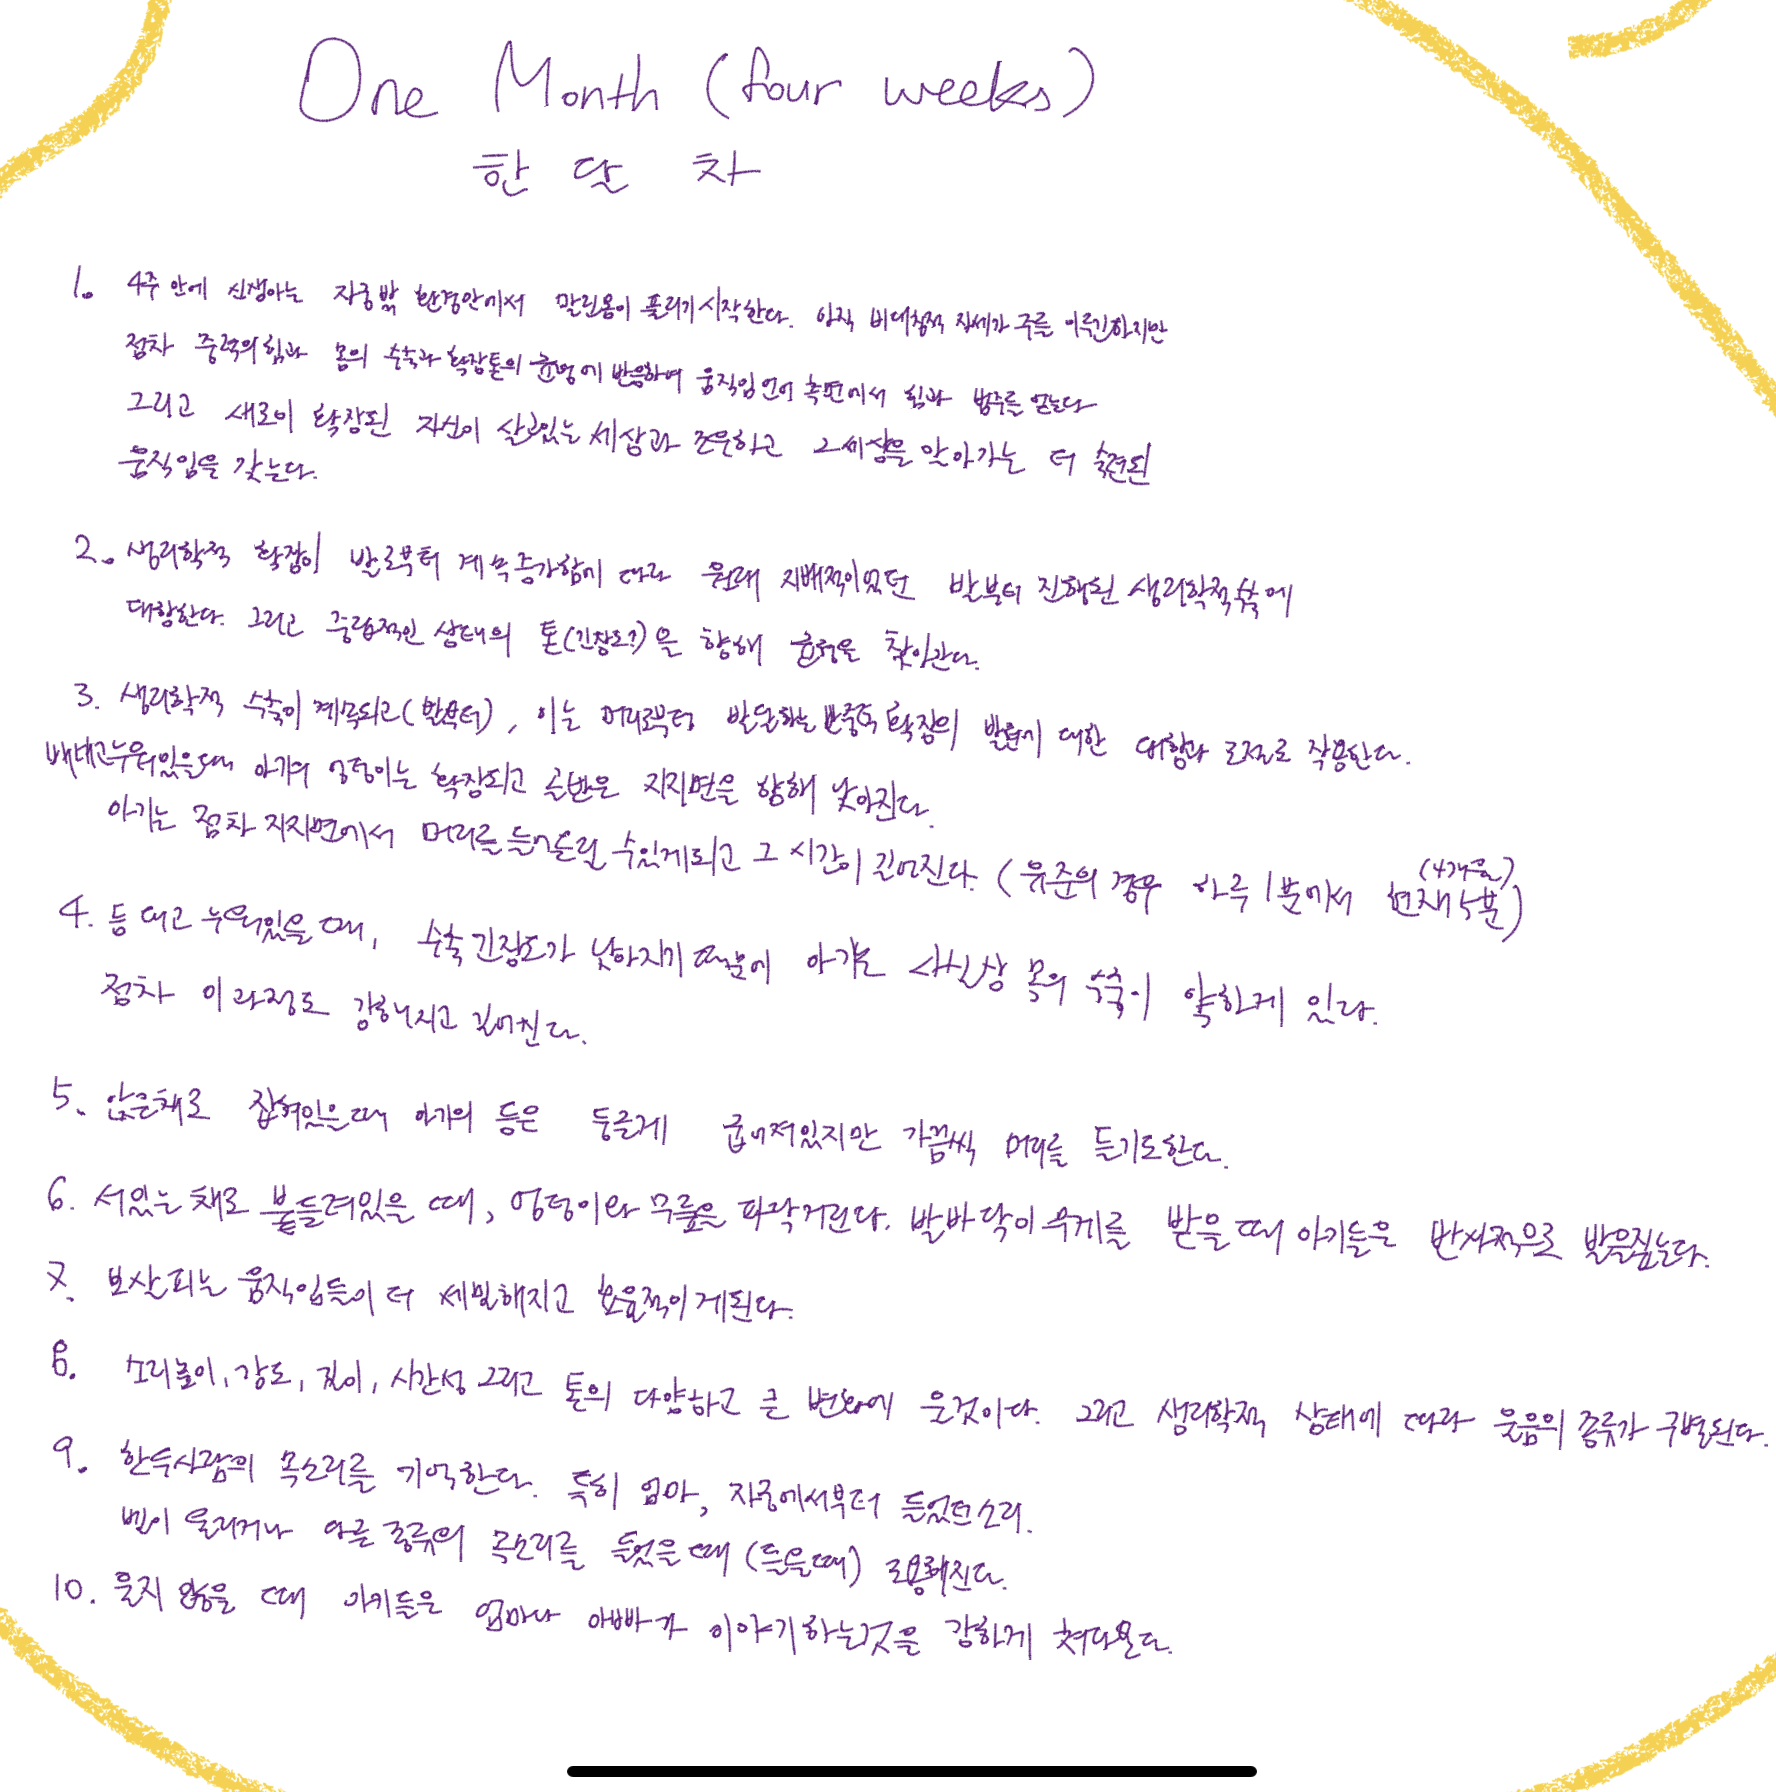 One Month (four weeks)
한 달 차
1. 4주 안에 신생아는 자궁밖 환경안에서 말린몸이 풀리기시작한다. 아직 비대칭적 자세가 주를 이루긴하지만
점차 중력의힘과 몸의 수축과 확장톤의 균형에 반응하여 움직임언어 측면에서 힘과 범주를 얻는다
그리고 새로이 확장된 자신이 살고있는 세상과 조우하고 그세상을 알아가는 더 숙련된
움직임을 갖는다.
2. 생리학적 확장이 발로부터 계속증가함에 따라 원래 지배적이었던 발부터 진행된 생리학적수축에
대항한다. 그리고 중립적인 상태의 톤(긴장도?)을 향해 균형을 찾아간다.
3. 생리학적 수축이 계속되고(발부터), 이는 머리로부터 발달하는 반중력 확장의 발달에 대한 대항과 조절로 작용한다.
배대고누워있을때 아기의 엉덩이는 확장되고 골반은 지지면을 향해 낮아진다.
아기는 점차 지지면에서 머리를 들어올릴 수있게되고 그 시간이 길어진다. (유준의 경우 하루 1분에서 현재 5분)
(4개월)
4. 등 대고 누워있을 때, 수축 긴장도가 낮아지기 때문에 아기는 사실상 목의 수축이 약하게 있다.
점차 이과정도 강해지고 길어진다.
5. 앉은채로 잡혀있을때 아기의 등은 둥글게 굽어져있지만 가끔씩 머리를 들기도한다.
6. 서있는 채로 붙들려있을 때, 엉덩이와 무릎은 파닥거린다. 발바닥이 무게를 받을 때 아기들은 반사적으로 발을짚는다.
7. 보살피는 움직임들이 더 세밀해지고 효율적이게된다.
8. 소리높이, 강도, 길이, 시간성 그리고 톤의 다양하고 큰 변화에 울것이다. 그리고 생리학적 상태에 따라 울음의 종류가 구별된다.
9. 한두사람의 목소리를 기억한다. 특히 엄마, 자궁에서부터 들었던소리.
벨이 울리거나 다른 종류의 목소리를 들었을 때 (들을때) 조용해진다.
10. 울지 않을 때 아기들은 엄마나 아빠가 이야기하는것을 강하게 쳐다본다.